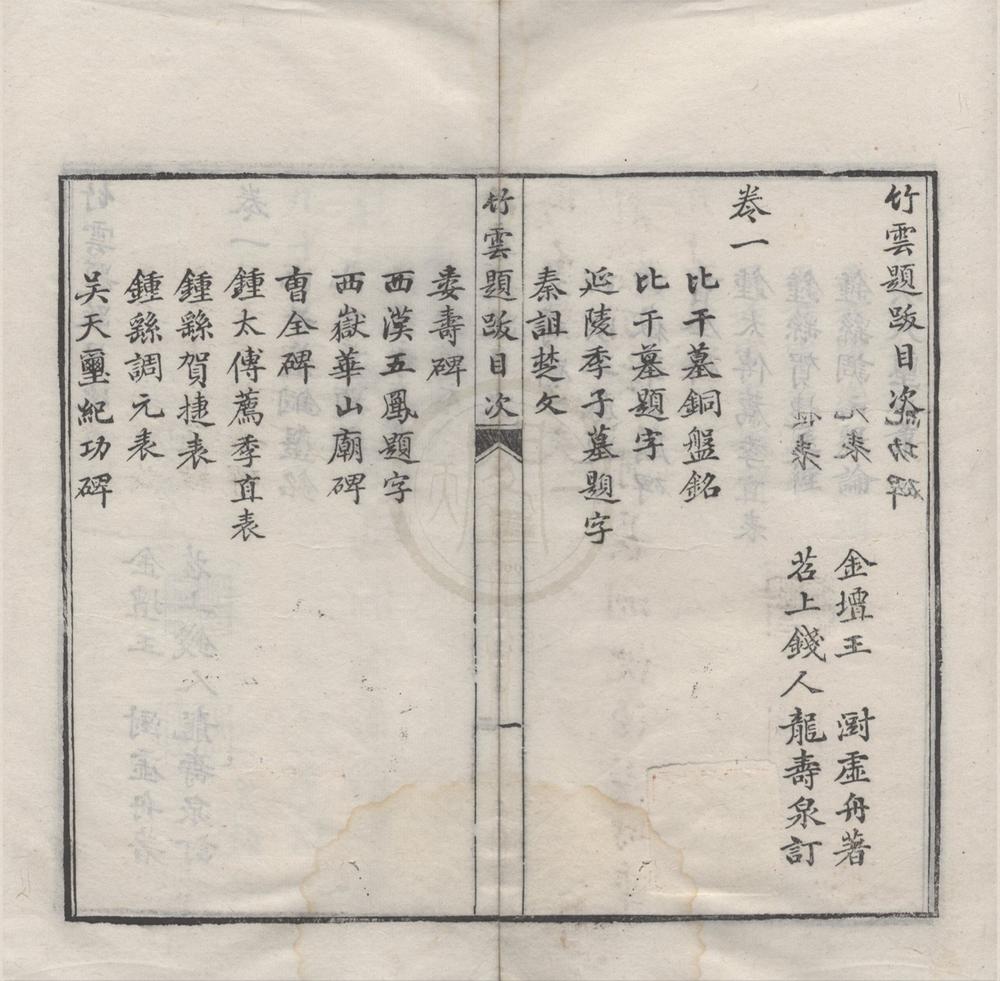 竹雲題跋目次
金壇王 澍虛舟著
苕上錢人龍壽泉訂
卷一
比干墓銅盤銘
比干墓題字
延陵季子墓題字
秦詛楚文
竹雲題跋目次
一
婁壽碑
西漢五鳳題字
西嶽華山廟碑
曹全碑
鍾太傅薦季直表
鍾繇賀捷表
鍾繇調元表
吴天璽紀功碑